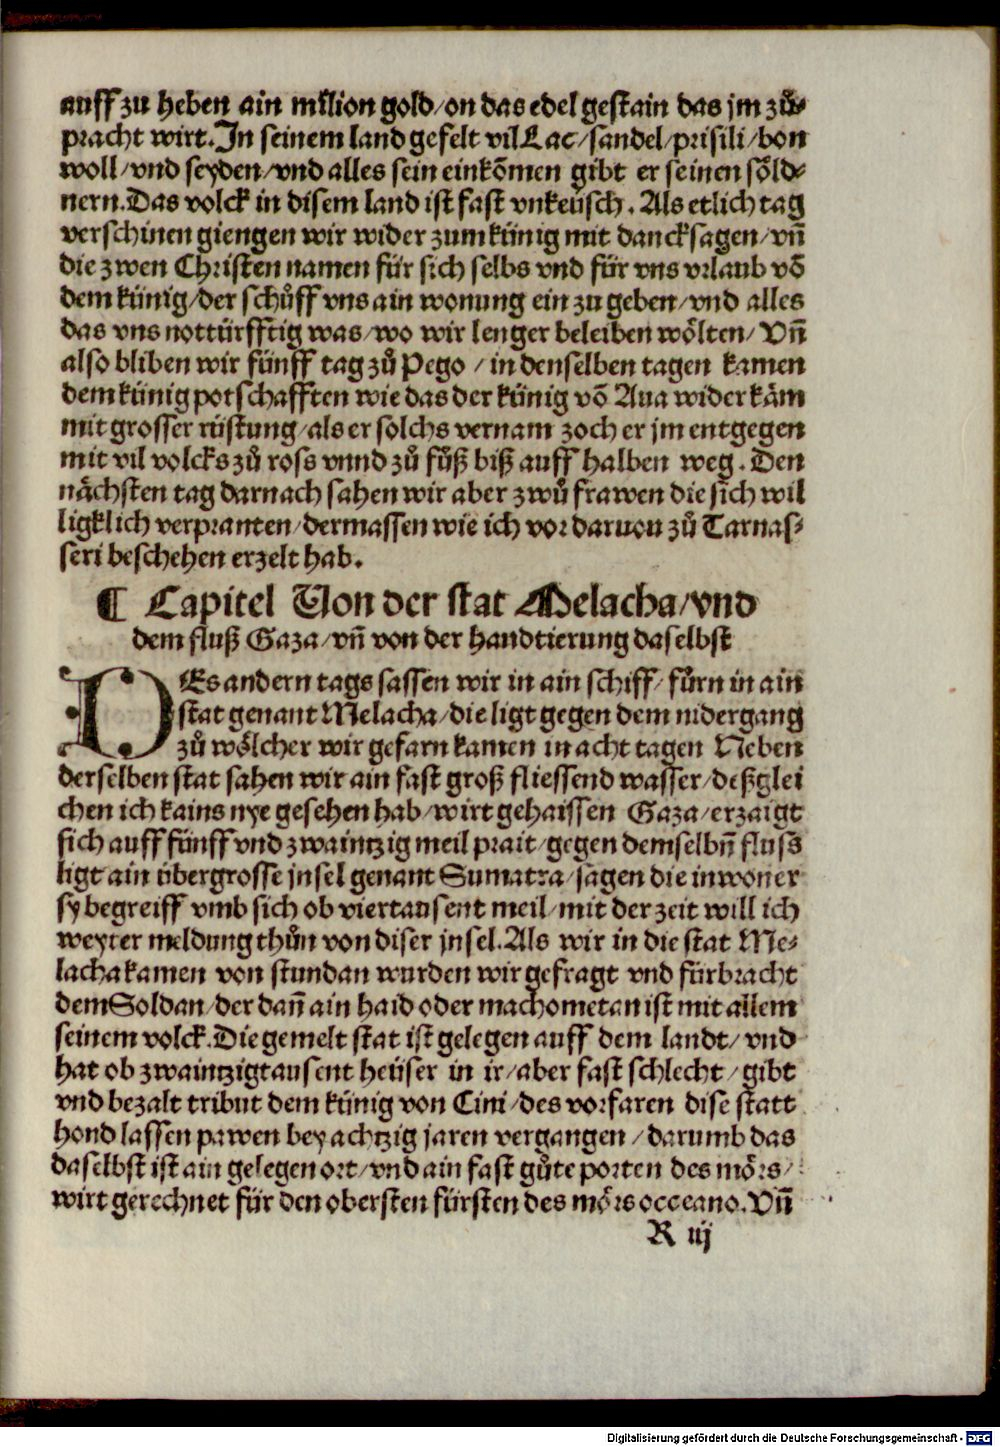 auff zu heben ain milion gold/on das edel gestain das jm zuͦ⸗
pracht wirt. In seinem land gefelt vil Lac/sandel/prisili/bon
woll/vnd seyden/vnd alles sein einkõmen gibt er seinen soͤld⸗
nern. Das volck in disem land ist fast vnkeüsch. Als etlich tag
verschinen giengen wir wider zum künig mit dancksagen/vñ
die zwen Christen namen für sich selbs vnd für vns vrlaub võ
dem künig/der schuͦff vns ain wonung ein zu geben/vnd alles
das vns nottürfftig was/wo wir lenger beleiben woͤlten/Vñ
also bliben wir fünff tag zuͦ Pego/in denselben tagen kamen
dem künig potschafften wie das der künig võ Aua wider kaͤm
mit grosser rüstung/als er solchs vernam zoch er jm entgegen
mit vil volcks zuͦ ross vnnd zuͦ fuͦß biß auff halben weg. Den
naͤchsten tag darnach sahen wir aber zwuͦ frawen die sich wil
ligklich verpranten/dermassen wie ich vor daruon zuͦ Tarnas⸗
seri beschehen erzelt hab.
¶ Capitel Von der stat Melacha/vnd
dem fluß Gaza/vñ von der handtierung daselbst
DEs andern tags sassen wir in ain schiff/fuͦrn in ain
stat genant Melacha/die ligt gegen dem nidergang
zuͦ woͤlcher wir gefarn kamen in acht tagen Neben
derselben stat sahen wir ain fast groß fliessend wasser/deßglei
chen ich kains nye gesehen hab/wirt gehaissen Gaza/erzaigt
sich auff fünff vnd zwaintzig meil prait/gegen demselbñ fluss
ligt ain übergrosse jnsel genant Sumatra/sagen die inwoner
sy begreiff vmb sich ob viertausent meil/mit der zeit will ich
weyter meldung thuͦn von diser jnsel. Als wir in die stat Me⸗
lacha kamen von stundan wurden wir gefragt vnd fürbracht
dem Soldan/der dañ ain haid oder machometan ist mit allem
seinem volck. Die gemelt stat ist gelegen auff dem landt/vnd
hat ob zwaintzigtausent heüser in ir/aber fast schlecht/gibt
vnd bezalt tribut dem künig von Cini/des vorfaren dise statt
hond lassen pawen bey achtzig jaren vergangen/darumb das
daselbst ist ain gelegen ort/vnd ain fast guͦte porten des moͤrs/
wirt gerechnet für den obersten fürsten des moͤrs occeano. Vñ
R iij
Digitalisierung gefördert durch die Deutsche Forschungsgemeinschaft - DFG